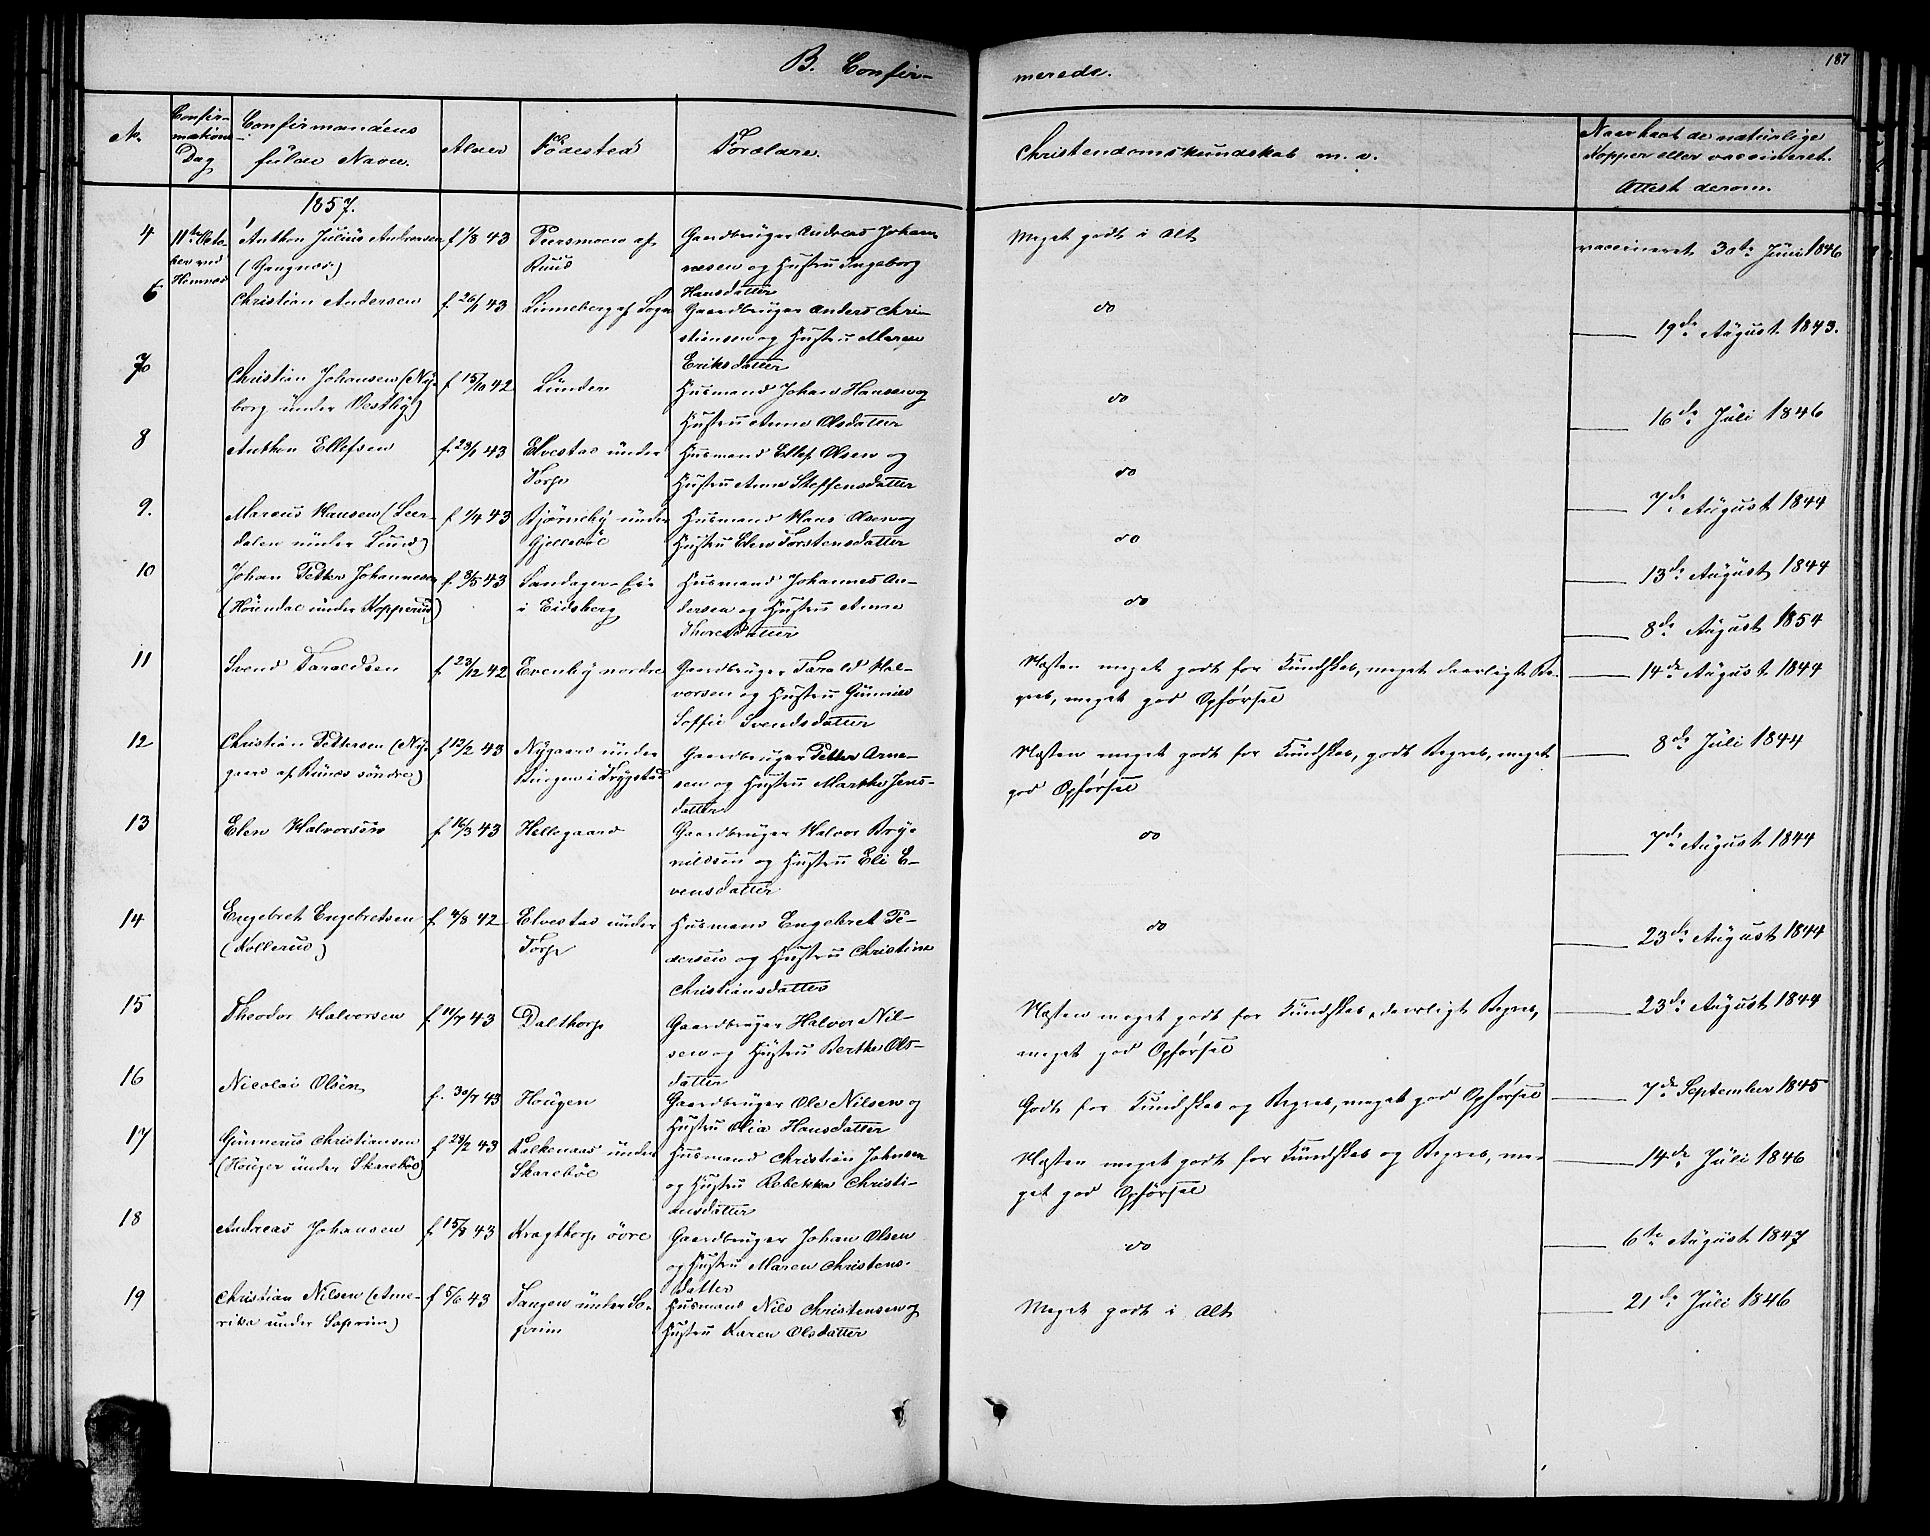 B. Confir-
merede.
187
No.
Confir-
mations
Dag
Confirmandens
fulde Navn.
Alder
Födested
Forældre.
Christendomskundskab m. v.
Naar havt de naturlige
Kopper eller vaccineret.
Attest derom.
1857.
4
11te Octo-
ber ved
Hemnæs
Anthon Julius Andersen
(Gangnæs)
f 1/8 43
Peersmoen af
Ruus
Gaardbruger Andreas Johan-
nesen og Hustru Ingeborg
Hansdatter
Meget godt i Alt
vaccineret 30te Juni 1846
6
Christian Andersen
f. 26/1 43
Linneberg af Sogn
Gaardbruger Anders Chri-
stiansen og Hustru Maren
Eriksdatter
do
19de August 1843.
7
Christian Johansen (Ny-
borg under Vestby)
f 15/10 42
Lunder
Husmand Johan Hansen og
Hustru Anne Olsdatter
do
16de Juli 1846
8
Anthon Ellefsen
f. 23/1 43
Elvestad under
Torp
Husmand Ellef Olsen og
Hustru Anne Steffensdatter
do
7de August 1844
9.
Marcus Hansen (Leer-
dalen under Lund)
f 1/4 43
Bjørneby under
Gjellebøl
Husmand Hans Olsen og
Hustru Elen Torstensdatter
do
13de August 1844
10
Johan Petter Johannesen
(Höiendal under Kopperud)
f. 3/5 43
Sandager-Eie
i Eidsberg
Husmand Johannes An-
dersen og Hustru Anne
Thoresdatter
do
8de August 1854
11
Svend Taraldsen
f 23/12 42
Evenby nordre
Gaardbruger Tarald Hal-
vorsen og Hustru Gunnild
Soffie Svendsdatter
Næsten meget godt for Kundskab, meget daarligt Be-
greb, meget god Opførsel
14de August 1844
12
Christian Pettersen (Ny-
gaard af Runæs söndre)
f 12/2 43
Nygaard under
Bingen i Trygstad
Gaardbruger Petter Arne-
sen og Hustru Marthe Jens-
datter
Næsten meget godt for Kundskab, godt Begreb, meget
god Opførsel
8de Juli 1844
13
Elen Halvorsen
f 16/3 43
Hellegaard
Gaardbruger Halvor Bry-
nildsen og Hustru Eli E-
vensdatter
do
7de August 1844
14
Engebret Engebretsen
(Kollerud)
f. 4/8 42
Elvestad under
Torp
Husmand Engebret Pe-
dersen og Hustru Christine
Christiansdatter
do
23de August 1844
15
Theodor Halvorsen
f. 14/7 43
Dalthorp
Gaardbruger Halvor Nil-
sen og Hustru Berthe Ols-
datter
Næsten meget godt for Kundskab, daarligt Begreb,
meget god Opførsel
23de August 1844
16
Nicolai Olsen
f. 30/7 43
Hougen
Gaardbruger Ole Nilsen og
Hustru Olia Hansdatter
Godt for Kundskab og Begreb, meget god Opførsel
7de September 1845
17
Gunnerus Christiansen
(Houger under Skarebøl)
f 28/2 43
Falkenaas under
Skarebøl
Husmand Christian Johnsen
og Hustru Rebekka Christi-
ansdatter
Næsten meget godt for Kundskab og Begreb, me-
get god Opførsel
14de Juli 1846
18
Andreas Johansen
f. 15/8 43
Kragthorp övre
Gaardbruger Johan Olsen
og Hustru Maren Christens-
datter
do
6te August 1847
19
Christian Nilsen (Ame-
rika under Soprim)
f 5/6 43
Tangen under So-
prim
Husmand Nils Christensen og
Hustru Karen Olsdatter
Meget godt i Alt
21de Juli 1846